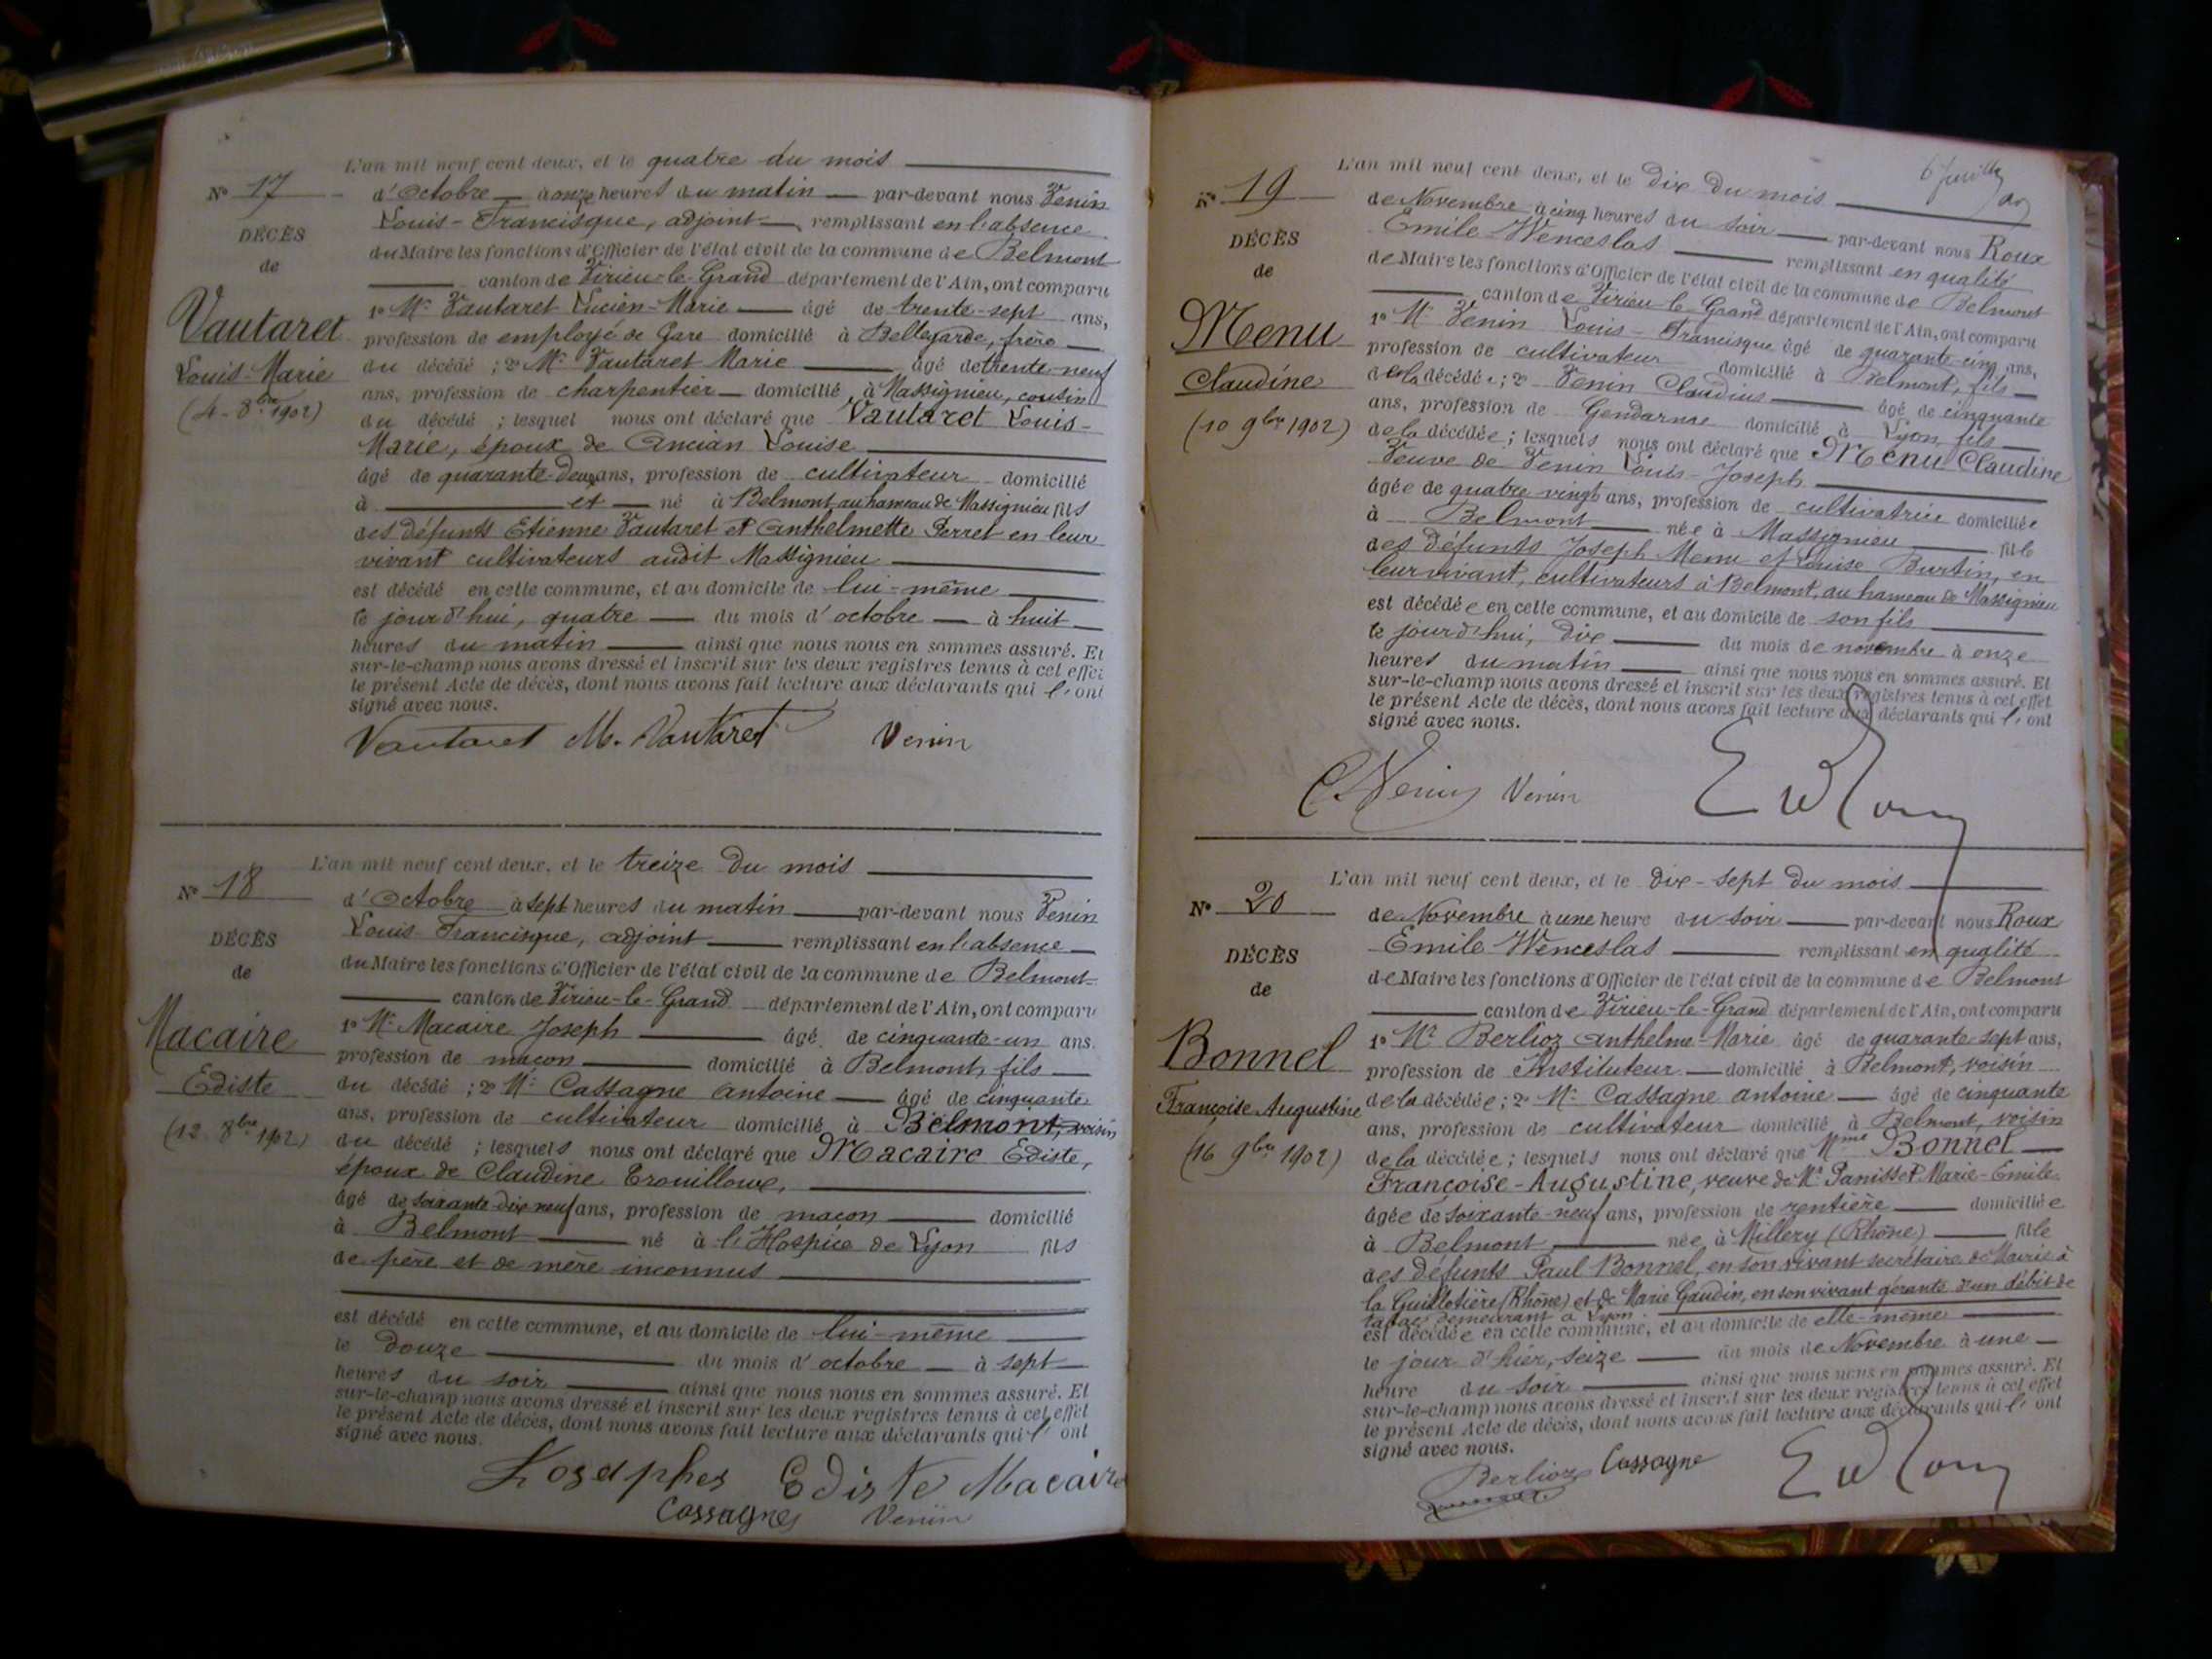 L'an mil neuf cent deux, et le quatre du mois
N° 17
d'Octobre à onze heures du matin par-devant nous Venin
Louis-Francisque, adjoint remplissant en l'absence
DÉCÈS
du Maire les fonctions d'Officier de l'état civil de la commune de Belmont
de
canton de Virieu-le-Grand département de l'Ain, ont comparu
Vautaret
1° Mr Vautaret Lucien-Marie âgé de trente-sept ans,
profession de employé de Gare domicilié à Bellegarde, frère
Louis-Marie
du décédé ; 2° Mr Vautaret Marie âgé de trente-neuf
(4-8bre 1902)
ans, profession de charpentier domicilié à Massignieu, cousin
du décédé ; lesquels nous ont déclaré que Vautaret Louis-
Marie, époux de Ancian Louise
âgé de quarante-deux ans, profession de cultivateur domicilié
à et né à Belmont au hameau de Massignieu fils
des défunts Etienne Vautaret et Anthelmette Perret en leur
vivant cultivateurs audit Massignieu
est décédé en cette commune, et au domicile de lui-même
le jourd'hui, quatre du mois d'octobre à huit
heures du matin ainsi que nous nous en sommes assuré. Et
sur-le-champ nous avons dressé et inscrit sur les deux registres tenus à cet effet
le présent Acte de décès, dont nous avons fait lecture aux déclarants qui l'ont
signé avec nous.
Vautaret M. Vautaret Venin
L'an mil neuf cent deux, et le treize du mois
N° 18
d'Octobre à sept heures du matin par-devant nous Venin
Louis-Francisque, adjoint remplissant en l'absence
DÉCÈS
du Maire les fonctions d'Officier de l'état civil de la commune de Belmont
de
canton de Virieu-le-Grand département de l'Ain, ont comparu
Macaire
1° Mr Macaire Joseph âgé de cinquante-un ans.
profession de maçon domicilié à Belmont, fils
Ediste
du décédé ; 2° Mr Cassagne Antoine âgé de cinquante
ans, profession de cultivateur domicilié à Belmont, voisin
(12 8bre 1902)
du décédé ; lesquels nous ont déclaré que Macaire Ediste,
époux de Claudine Trouilloux,
âgé de soixante-dix neuf ans, profession de maçon domicilié
à Belmont né à l'Hospice de Lyon fils
de père et de mère inconnus
est décédé en cette commune, et au domicile de lui-même
le douze du mois d'octobre à sept
heures du soir ainsi que nous nous en sommes assuré. Et
sur-le-champ nous avons dressé et inscrit sur les deux registres tenus à cet effet
le présent Acte de décès, dont nous avons fait lecture aux déclarants qui l'ont
signé avec nous.
Ediste Macaire
Cassagne Venin
L'an mil neuf cent deux, et le dix du mois
N° 19
de Novembre à cinq heures du soir par-devant nous Roux
Emile Wenceslas remplissant en qualité
DÉCÈS
de Maire les fonctions d'Officier de l'état civil de la commune de Belmont
de
canton de Virieu-le-Grand département de l'Ain, ont comparu
Menu
1° M Venin Louis-Francisque âgé de quarante-cinq ans,
profession de cultivateur domicilié à Belmont, fils
Claudine
de la décédée ; 2° Venin Claudius âgé de cinquante
ans, profession de Gendarme domicilié à Lyon, fils
(10 9bre 1902)
de la décédée ; lesquels nous ont déclaré que Menu Claudine
Veuve de Venin Louis-Joseph
âgée de quatre-vingt ans, profession de cultivatrice domiciliée
à Belmont née à Massignieu fille
des défunts Joseph Menu et Louise Burtin, en
leur vivant, cultivateurs à Belmont, au hameau de Massignieu
est décédée en cette commune, et au domicile de son fils
le jourd'hui, dix du mois de novembre à onze
heures du matin ainsi que nous nous en sommes assuré. Et
sur-le-champ nous avons dressé et inscrit sur les deux registres tenus à cet effet
le présent Acte de décès, dont nous avons fait lecture aux déclarants qui l'ont
signé avec nous.
C Venin Venin
L'an mil neuf cent deux, et le dix-sept du mois
N° 20
de Novembre à une heure du soir par-devant nous Roux
Emile Wenceslas remplissant en qualité
DÉCÈS
de Maire les fonctions d'Officier de l'état civil de la commune de Belmont
de
canton de Virieu-le-Grand département de l'Ain, ont comparu
Bonnel
1° Mr Berlioz Anthelme-Marie âgé de quarante-sept ans,
profession de Instituteur domicilié à Belmont, voisin
Françoise Augustine
de la décédée ; 2° Mr Cassagne Antoine âgé de cinquante
ans, profession de cultivateur domicilié à Belmont, voisin
(16 9bre 1902)
de la décédée ; lesquels nous ont déclaré que Mme Bonnel
Françoise-Augustine, veuve de Mr Panisset Marie-Emile
âgée de soixante-neuf ans, profession de rentière domiciliée
à Belmont née à Millery (Rhône) fille
des défunts Paul Bonnel, en son vivant secrétaire de Mairie à
la Guillotière (Rhône) et de Marie Gaudin, en son vivant gérante d'un débit de
tabac demeurant à Lyon
est décédée en cette commune, et au domicile de elle-même
le jour d'hier, seize du mois de Novembre à une
heure du soir ainsi que nous nous en sommes assuré. Et
sur-le-champ nous avons dressé et inscrit sur les deux registres tenus à cet effet
le présent Acte de décès, dont nous avons fait lecture aux déclarants qui l'ont
signé avec nous.
Berlioz Cassagne